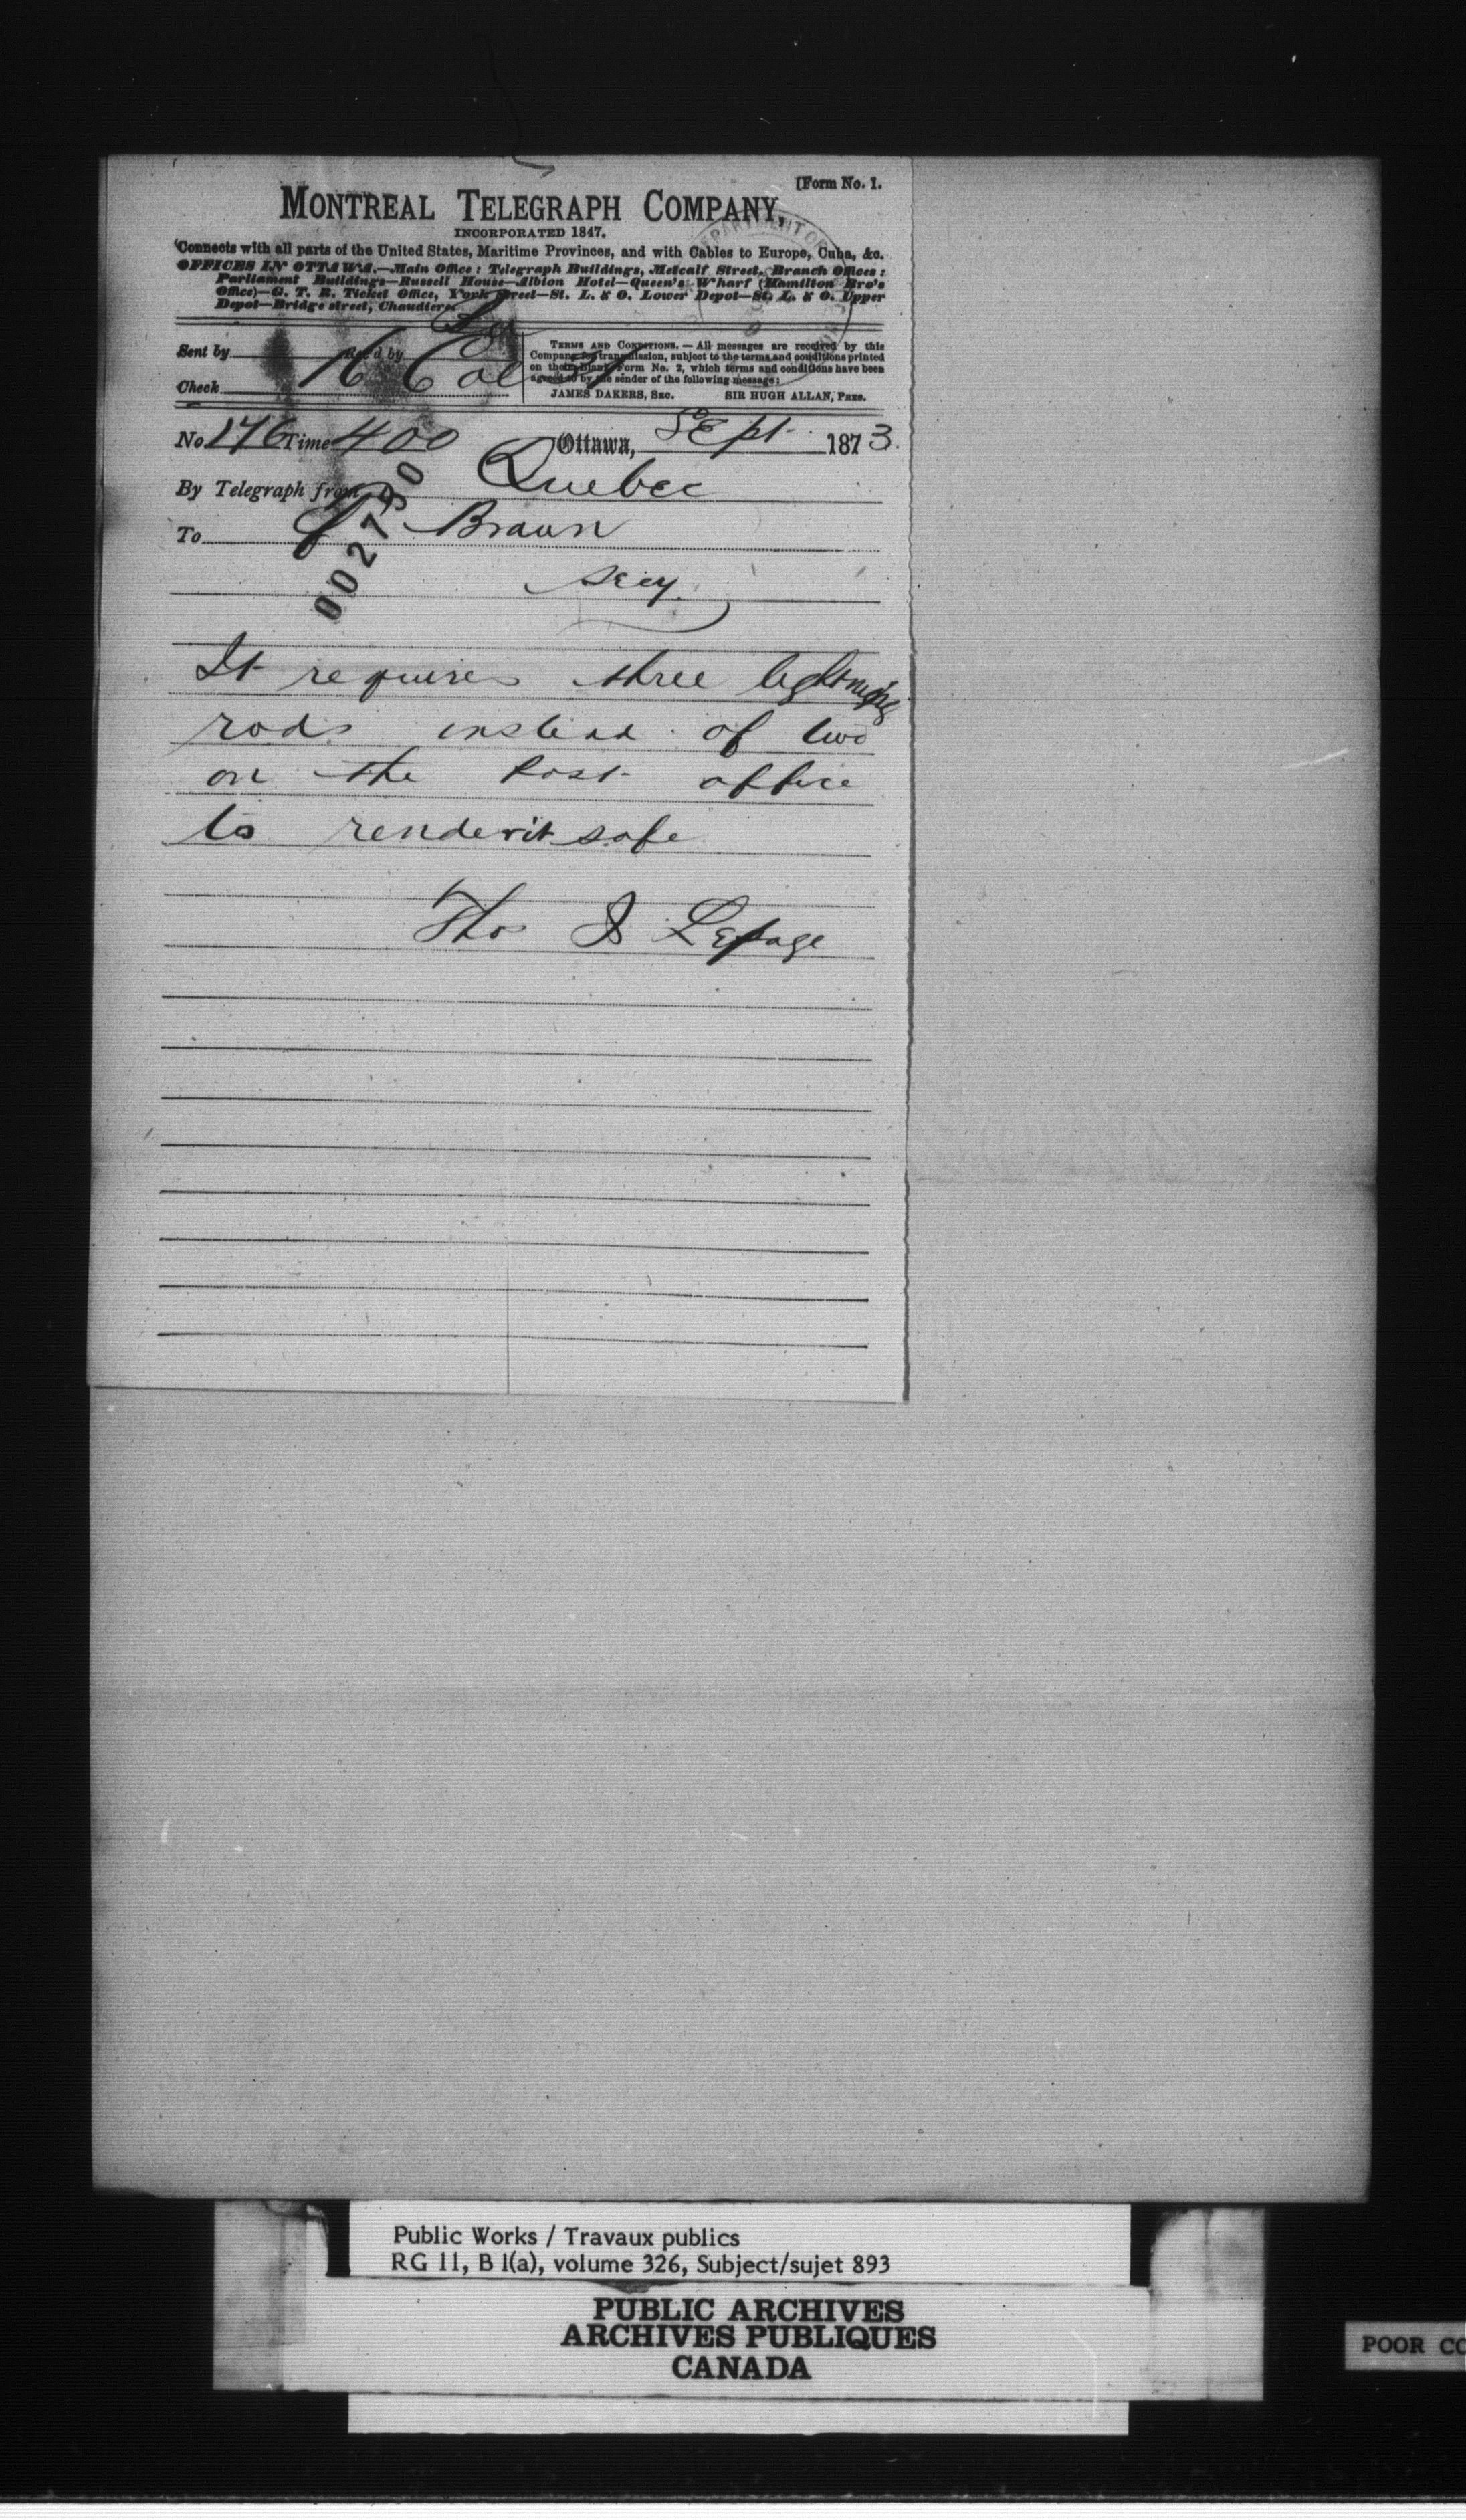 [Form No. 1.
MONTREAL TELEGRAPH COMPANY,
INCORPORATED 1847.
Connects with all parts of the United States, Maritime Provinces, and with Cables to Europe, Cuba, &c.
OFFICES IN OTTAWA.—Main Office: Telegraph Buildings, Metcalf Street. Branch Offices:
Parliament Buildings—Russell House—Albion Hotel—Queen's Wharf (Hamilton Bro's
Office)—G. T. R. Ticket Office, York Street—St. L. & O. Lower Depot—St. L. & O. Upper
Depot—Bridge street, Chaudiere.
Sent by Rec'd by
Check 16 Col
TERMS AND CONDITIONS. — All messages are received by this
Company for transmission, subject to the terms and conditions printed
on their Blank Form No. 2, which terms and conditions have been
agreed to by the sender of the following message:
JAMES DAKERS, SEC. SIR HUGH ALLAN, PRES.
DEPARTMENT OF
No 146 Time 400 Ottawa, Sept 1873.
By Telegraph from Quebec
002790
To F Braun
Secy.
It requires three lightning
rods instead of two
on the Post office
to render it safe
Thos S Lepage
Public Works / Travaux publics
RG 11, B 1(a), volume 326, Subject/sujet 893
PUBLIC ARCHIVES
ARCHIVES PUBLIQUES
CANADA
POOR CO